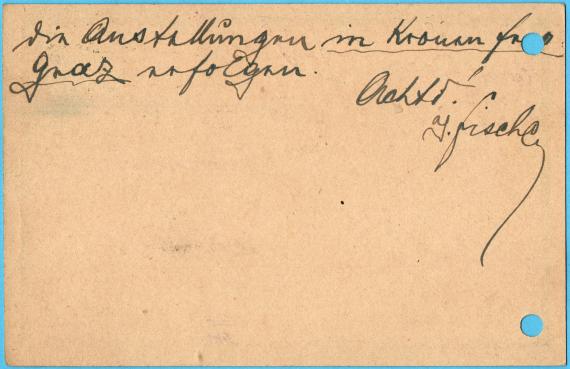 die Anstellungen in Kronen
Graz erfolgen.
Achtd!
J. Fischer